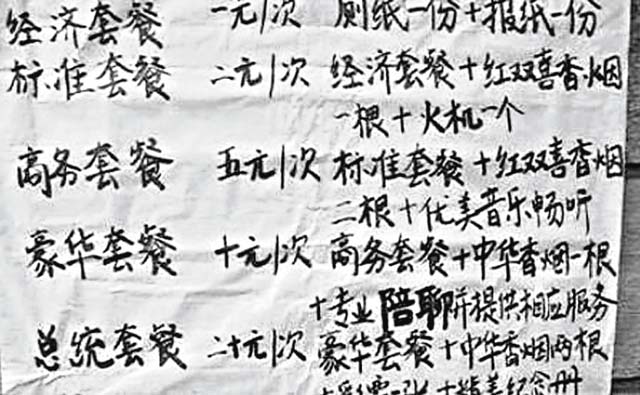 经济套餐 一元/次 厕纸一份+报纸一份
标准套餐 二元/次 经济套餐+红双喜香烟
一根+火机一个
商务套餐 五元/次 标准套餐+红双喜香烟
二根+优美音乐畅听
豪华套餐 十元/次 商务套餐+中华香烟一根
+专业陪聊并提供相应服务
总统套餐 二十元/次 豪华套餐+中华香烟两根
一张+精美纪念册